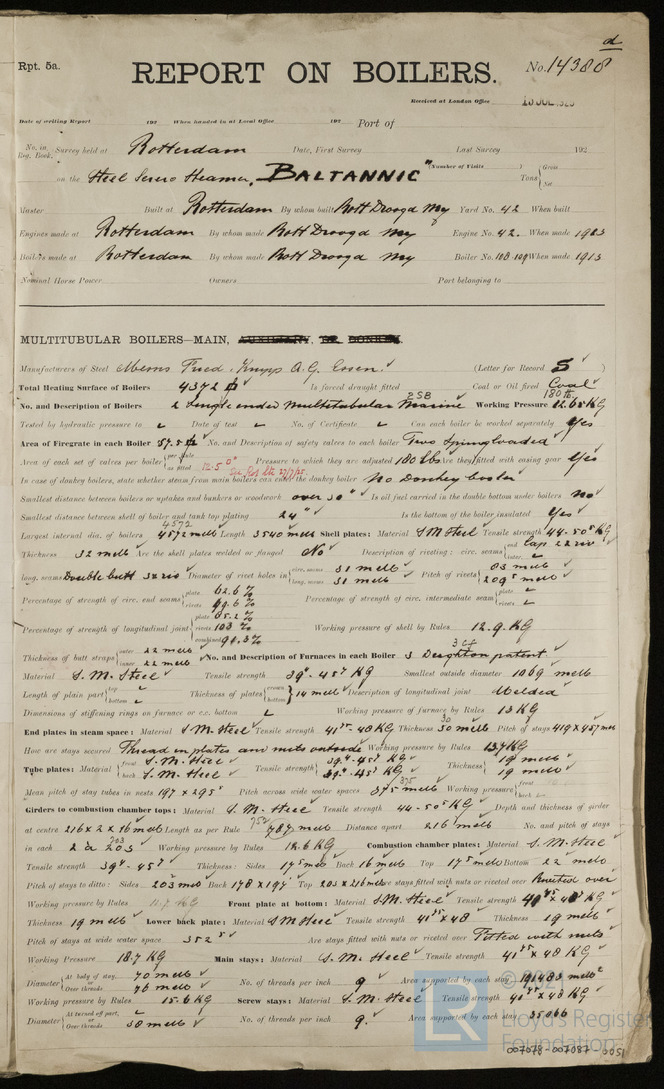 d
Rpt. 5a.
REPORT ON BOILERS.
No. 14388
Received at London Office
Date of writing Report 192 When handed in at Local Office 192 Port of
No. in Reg. Book. Survey held at Rotterdam Date, First Survey Last Survey 192
(Number of Visits )
on the Steel Screw Steamer, "BALTANNIC" Tons { Gross Net
Master Built at Rotterdam By whom built Rott Droogd My Yard No. 42 When built
Engines made at Rotterdam By whom made Rott Droogd My Engine No. 42. When made 1923
Boilers made at Rotterdam By whom made Rott Droogd My Boiler No. 108-109 When made 1913
Nominal Horse Power Owners Port belonging to
MULTITUBULAR BOILERS—MAIN, AUXILIARY, OR DONKEY.
Manufacturers of Steel Messrs Fried. Krupp A.G. Essen. (Letter for Record S )
Total Heating Surface of Boilers 4372 Is forced draught fitted Coal or Oil fired Coal
2 SB 180 lbs
No. and Description of Boilers 2 Single ended multitubular Marine Working Pressure 12.65 KG
Tested by hydraulic pressure to Date of test No. of Certificate Can each boiler be worked separately Yes
Area of Firegrate in each Boiler 57.5 No. and Description of safety valves to each boiler Two Spring loaded
Area of each set of valves per boiler { per Rule as fitted Pressure to which they are adjusted 180 lbs Are they fitted with easing gear Yes
In case of donkey boilers, state whether steam from main boilers can enter the donkey boiler No Donkey boiler
Smallest distance between boilers or uptakes and bunkers or woodwork over 30" Is oil fuel carried in the double bottom under boilers No
Smallest distance between shell of boiler and tank top plating 24" Is the bottom of the boiler insulated Yes
4572
Largest internal dia. of boilers 4572 mell Length 3540 mell Shell plates: Material S M Steel Tensile strength 44-50 KG
Thickness 32 mell Are the shell plates welded or flanged No Description of riveting: circ. seams { end Lap 22 riv inter.
long. seams Double butt 5x riv Diameter of rivet holes in { circ. seams 31 mell long. seams 31 mell Pitch of rivets { 83 mell 209.5 mell
Percentage of strength of circ. end seams { plate 62.6 % rivets % Percentage of strength of circ. intermediate seam { plate rivets
Percentage of strength of longitudinal joint { plate 85.2 % rivets 103 % combined 91.3% Working pressure of shell by Rules 12.9. KG
Thickness of butt straps { outer 22 mell inner 22 mell No. and Description of Furnaces in each Boiler 3 Deighton patent.
Material S. M. Steel Tensile strength Smallest outside diameter 1069 mell
Length of plain part { top bottom Thickness of plates { crown bottom } 14 mell Description of longitudinal joint Welded
Dimensions of stiffening rings on furnace or c.c. bottom Working pressure of furnace by Rules 13 KG
End plates in steam space: Material S M Steel Tensile strength Thickness 30 mell Pitch of stays 419 x 457 mell
How are stays secured Thread in plates and nuts outside Working pressure by Rules 13.7 KG
Tube plates: Material { front S. M. Steel back S. M. Steel Tensile strength Thickness { 19 mell 19 mell
Mean pitch of stay tubes in nests 197 x 295 Pitch across wide water spaces 375 mell Working pressure { front back
Girders to combustion chamber tops: Material S. M. Steel Tensile strength 44-50 KG Depth and thickness of girder
at centre 216 x 2 x 16 mell Length as per Rule 787 mell Distance apart 216 mell No. and pitch of stays
in each 2 à 203 Working pressure by Rules 12.6 KG Combustion chamber plates: Material S. M. Steel
Tensile strength Thickness: Sides 17 5 mell Back 16 mell Top 17 5 mell Bottom 22 mell
Pitch of stays to ditto: Sides 203 mell Back 178 x 197 Top 203 x 216 mell Are stays fitted with nuts or riveted over Riveted over
Working pressure by Rules Front plate at bottom: Material S. M. Steel Tensile strength
Thickness 19 mell Lower back plate: Material S M Steel Tensile strength Thickness 19 mell
Pitch of stays at wide water space 352 5 Are stays fitted with nuts or riveted over Fitted with nuts
Working Pressure 18.7 KG Main stays: Material S. M. Steel Tensile strength
Diameter { At body of stay, or Over threads 70 mell 76 mell No. of threads per inch 9 Area supported by each stay
Working pressure by Rules 15.6 KG Screw stays: Material S. M. Steel Tensile strength
Diameter { At turned off part, or Over threads 38 mell No. of threads per inch 9. Area supported by each stay 35066
LR
Lloyd's Register
Foundation
007078-007087-0051